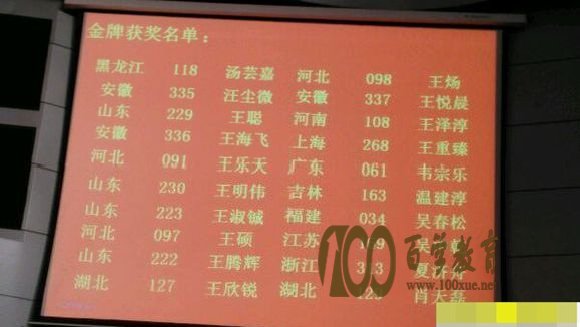 金牌获奖名单：
黑龙江 118 汤芸嘉 河北 098 王炀
安徽 335 汪尘微 安徽 337 王悦晨
山东 229 王聪 河南 108 王泽淳
安徽 336 王海飞 上海 268 王重臻
河北 091 王乐天 广东 061 韦宗乐
山东 230 王明伟 吉林 163 温建淳
山东 223 王淑钺 福建 034 吴春松
河北 097 王硕 江苏
山东 222 王腾辉 浙江 313
湖北 127 王欣锐 湖北 肖天磊
100 百学教育
www.100xue.net